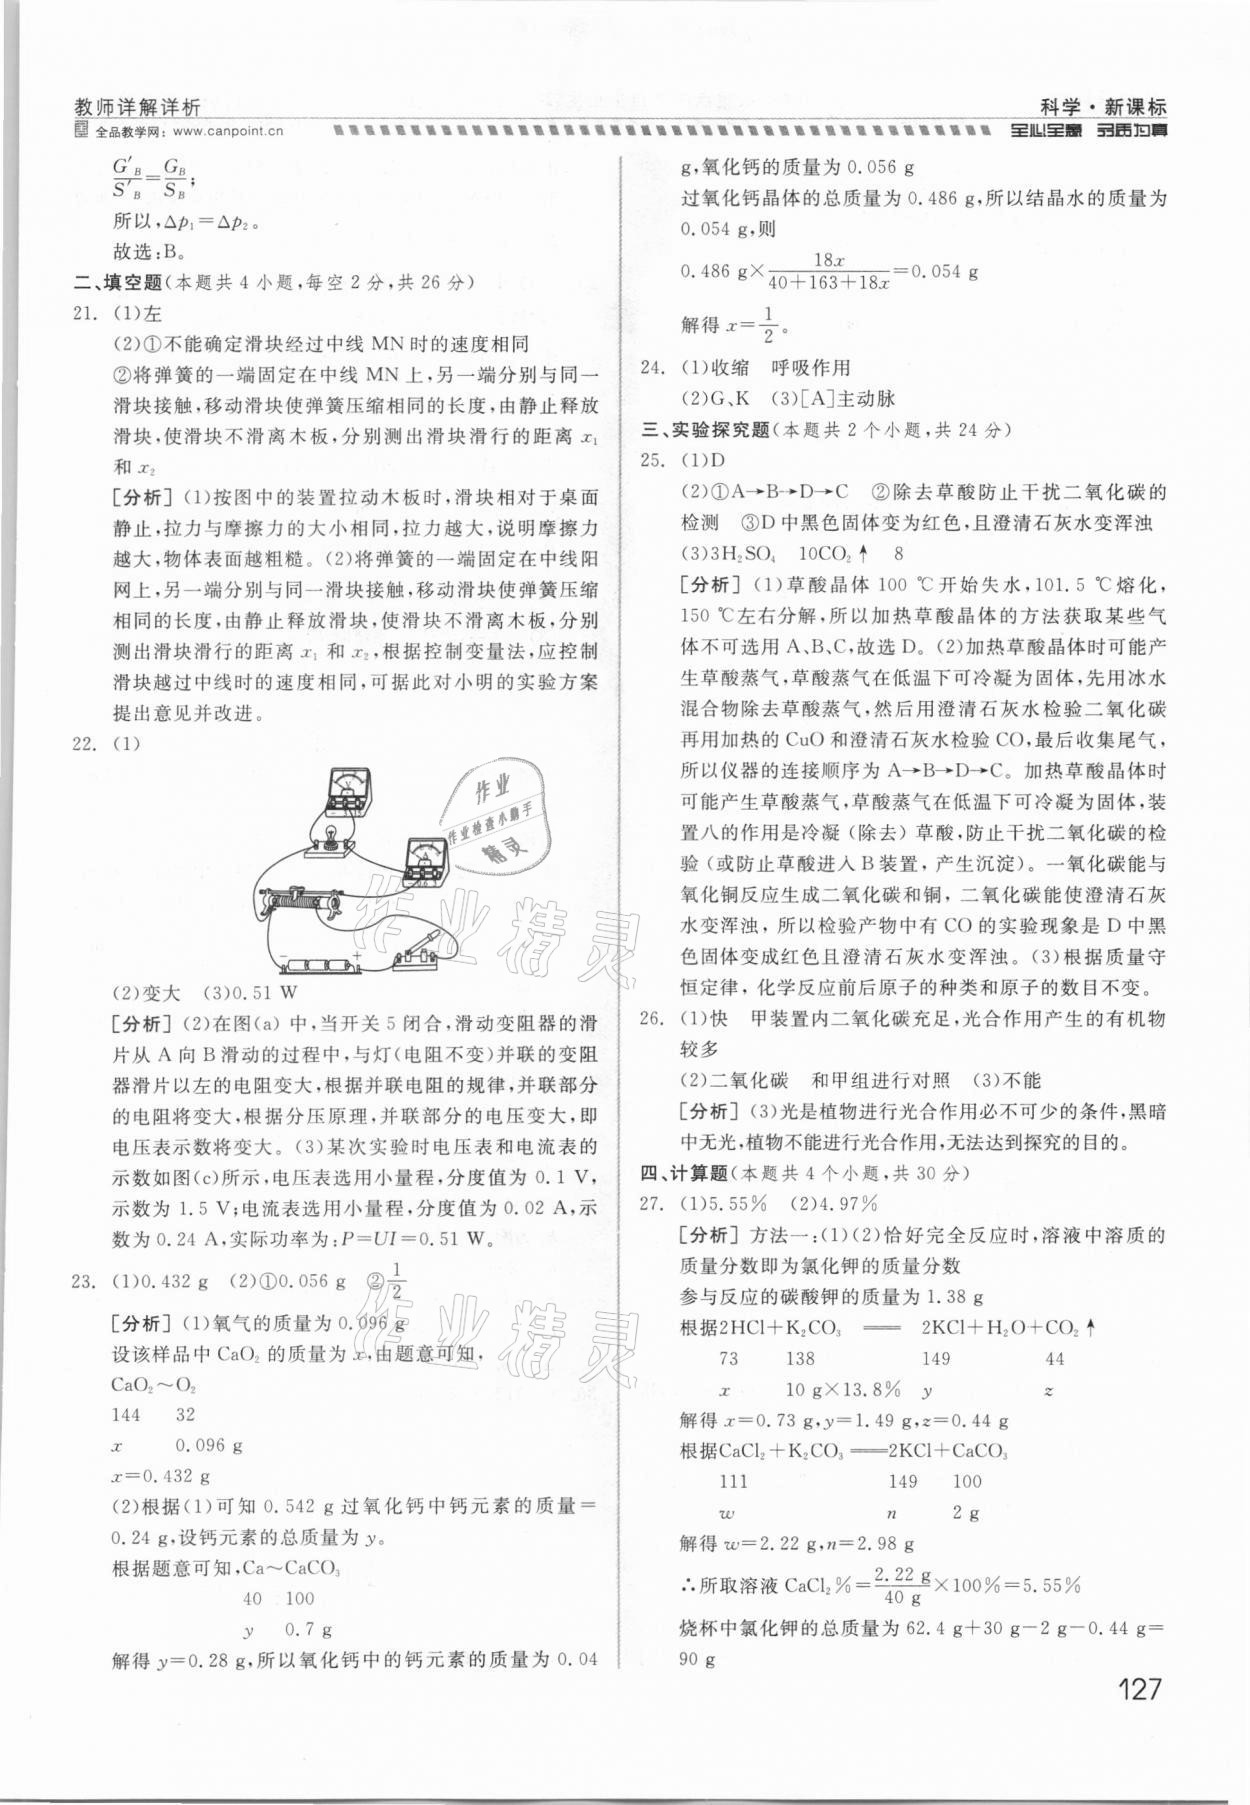 教师详解详析
全品教学网：www.canpoint.cn
科学·新课标
全心全意 字质为真
G′B/S′B=GB/SB;
所以,Δp₁=Δp₂。
故选:B。
二、填空题(本题共4小题,每空2分,共26分)
21. (1)左
(2)①不能确定滑块经过中线MN时的速度相同
②将弹簧的一端固定在中线MN上,另一端分别与同一
滑块接触,移动滑块使弹簧压缩相同的长度,由静止释放
滑块,使滑块不滑离木板,分别测出滑块滑行的距离x₁
和x₂
[分析] (1)按图中的装置拉动木板时,滑块相对于桌面
静止,拉力与摩擦力的大小相同,拉力越大,说明摩擦力
越大,物体表面越粗糙。(2)将弹簧的一端固定在中线阳
网上,另一端分别与同一滑块接触,移动滑块使弹簧压缩
相同的长度,由静止释放滑块,使滑块不滑离木板,分别
测出滑块滑行的距离x₁和x₂,根据控制变量法,应控制
滑块越过中线时的速度相同,可据此对小明的实验方案
提出意见并改进。
22. (1)
V
A
− +
(2)变大 (3)0.51 W
[分析] (2)在图(a)中,当开关5闭合,滑动变阻器的滑
片从A向B滑动的过程中,与灯(电阻不变)并联的变阻
器滑片以左的电阻变大,根据并联电阻的规律,并联部分
的电阻将变大,根据分压原理,并联部分的电压变大,即
电压表示数将变大。(3)某次实验时电压表和电流表的
示数如图(c)所示,电压表选用小量程,分度值为0.1 V,
示数为1.5 V;电流表选用小量程,分度值为0.02 A,示
数为0.24 A,实际功率为:P=UI=0.51 W。
23. (1)0.432 g (2)①0.056 g ②1/2
[分析] (1)氧气的质量为0.096 g
设该样品中CaO₂的质量为x,由题意可知,
CaO₂~O₂
144 32
x 0.096 g
x=0.432 g
(2)根据(1)可知0.542 g过氧化钙中钙元素的质量=
0.24 g,设钙元素的总质量为y。
根据题意可知,Ca~CaCO₃
40 100
y 0.7 g
解得y=0.28 g,所以氧化钙中的钙元素的质量为0.04
g,氧化钙的质量为0.056 g
过氧化钙晶体的总质量为0.486 g,所以结晶水的质量为
0.054 g,则
0.486 g×18x/(40+163+18x)=0.054 g
解得x=1/2。
24. (1)收缩 呼吸作用
(2)G、K (3)[A]主动脉
三、实验探究题(本题共2个小题,共24分)
25. (1)D
(2)①A→B→D→C ②除去草酸防止干扰二氧化碳的
检测 ③D中黑色固体变为红色,且澄清石灰水变浑浊
(3)3H₂SO₄ 10CO₂↑ 8
[分析] (1)草酸晶体100 ℃开始失水,101.5 ℃熔化,
150 ℃左右分解,所以加热草酸晶体的方法获取某些气
体不可选用A、B、C,故选D。(2)加热草酸晶体时可能产
生草酸蒸气,草酸蒸气在低温下可冷凝为固体,先用冰水
混合物除去草酸蒸气,然后用澄清石灰水检验二氧化碳
再用加热的CuO和澄清石灰水检验CO,最后收集尾气,
所以仪器的连接顺序为A→B→D→C。加热草酸晶体时
可能产生草酸蒸气,草酸蒸气在低温下可冷凝为固体,装
置八的作用是冷凝(除去)草酸,防止干扰二氧化碳的检
验(或防止草酸进入B装置,产生沉淀)。一氧化碳能与
氧化铜反应生成二氧化碳和铜,二氧化碳能使澄清石灰
水变浑浊,所以检验产物中有CO的实验现象是D中黑
色固体变成红色且澄清石灰水变浑浊。(3)根据质量守
恒定律,化学反应前后原子的种类和原子的数目不变。
26. (1)快 甲装置内二氧化碳充足,光合作用产生的有机物
较多
(2)二氧化碳 和甲组进行对照 (3)不能
[分析] (3)光是植物进行光合作用必不可少的条件,黑暗
中无光,植物不能进行光合作用,无法达到探究的目的。
四、计算题(本题共4个小题,共30分)
27. (1)5.55% (2)4.97%
[分析] 方法一:(1)(2)恰好完全反应时,溶液中溶质的
质量分数即为氯化钾的质量分数
参与反应的碳酸钾的质量为1.38 g
根据2HCl+K₂CO₃══2KCl+H₂O+CO₂↑
73 138 149 44
x 10 g×13.8% y z
解得x=0.73 g,y=1.49 g,z=0.44 g
根据CaCl₂+K₂CO₃══2KCl+CaCO₃
111 149 100
w n 2 g
解得w=2.22 g,n=2.98 g
∴所取溶液CaCl₂%=2.22 g/40 g×100%=5.55%
烧杯中氯化钾的总质量为62.4 g+30 g−2 g−0.44 g=
90 g
127
作业
作业检查小助手
精灵
作业精灵
作业精灵